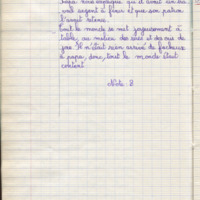 Papa nous expliqua qu'il avait eu du
avait argent à finir et que son patron
l'avait retenu.
Tout le monde se mit joyeusement à
table, au milieu des cris et des ris de
joie. Il n'était rien arrivé de fâcheux
à papa, donc, tout le monde était
content
Note : 8